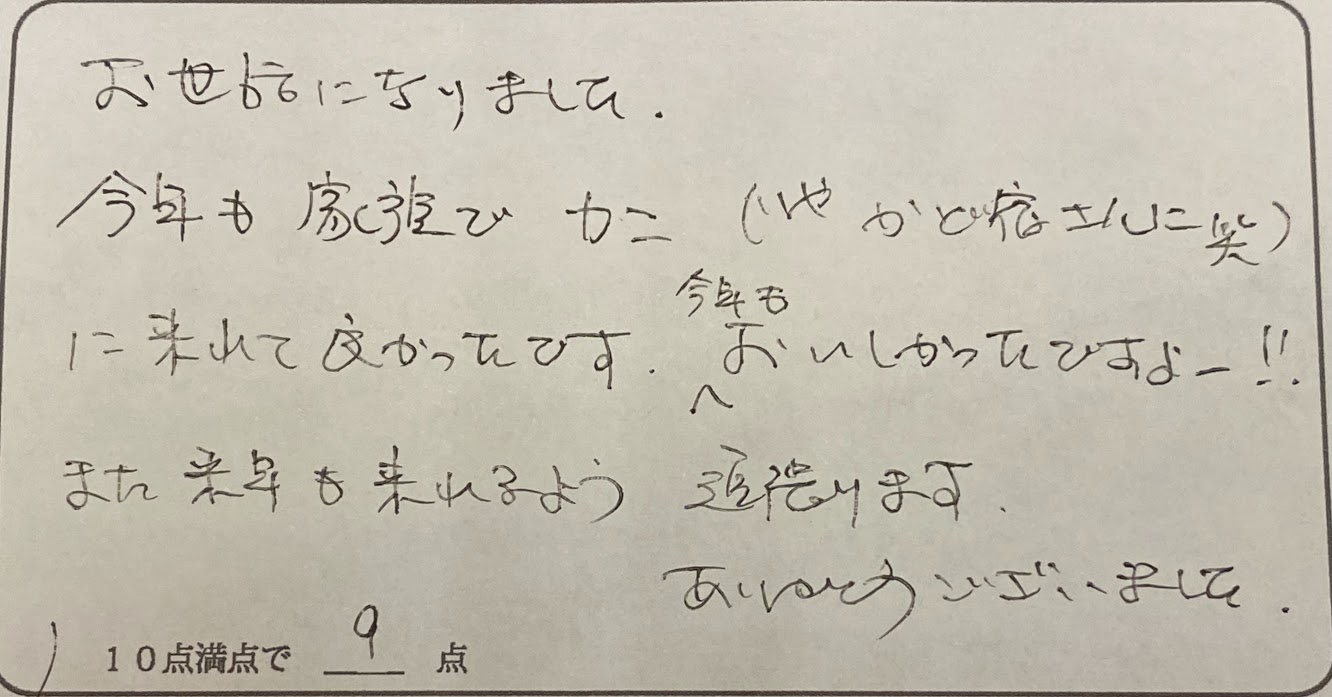 お世話になりました.
今年も 家族で カニ (いや かど宿さんに笑)
に来れて良かったです. 今年もおいしかったですよー!!
また来年も来れるよう 頑張ります.
ありがとうございました.
10点満点で 9 点